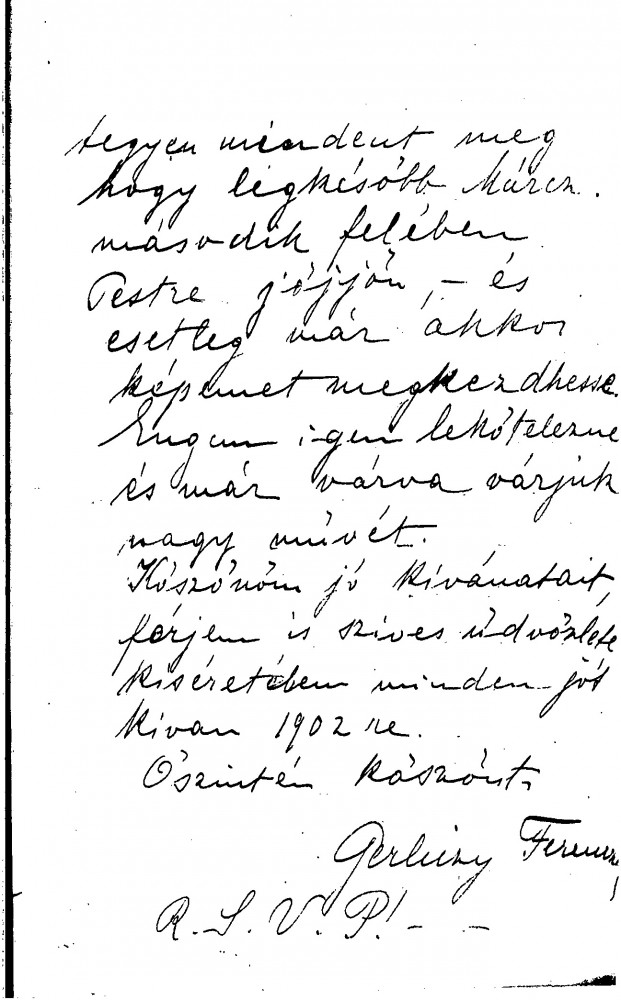 tegyen mindent meg
hogy legkésőbb Márcz.
második felében
Pestre jöjjön, – és
esetleg már akkor
képemet megkezdhesse.
Engem igen lekötelezne
és már várva várjuk
nagy művét.
Köszönöm jó kivánatait,
férjem is szives üdvözlete
kiséretében minden jót
kivan 1902 re.
Őszintén köszönt,
Gerliczy Ferencz
R. S. V. P! – –